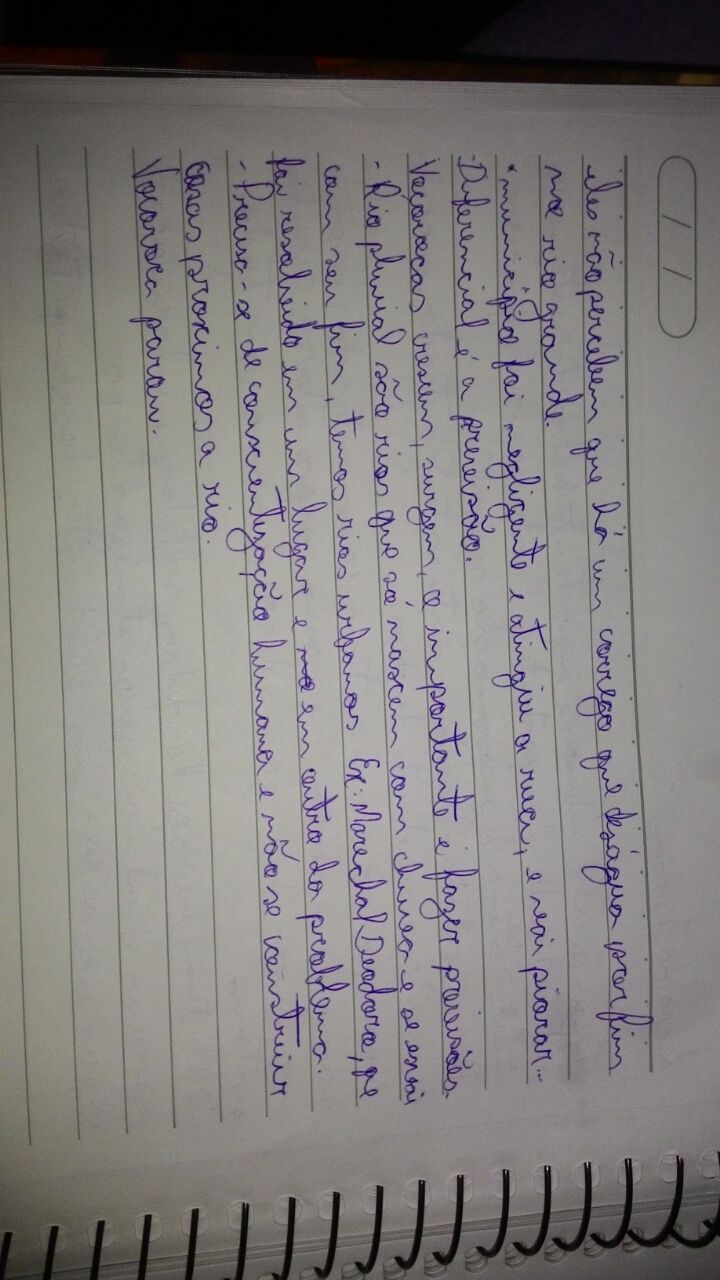 / /
eles não percebem que há um corrego que deságua por fim
no rio grande.
* município foi negligente e atingiu a rua, e vai piorar..
-Diferencial é a previsão.
Voçorocas crescem, surgem, o importante é fazer previsões.
- Rio pluvial são rios que só nascem com chuva e se esvai
com seu fim, temos rios urbanos Ex: Marechal Deodoro, que
foi resolvido em um lugar e em outro da problema.
- Precisa-se de conscientização humana e não se construir
casas proximos a rio.
Vocoroca param.